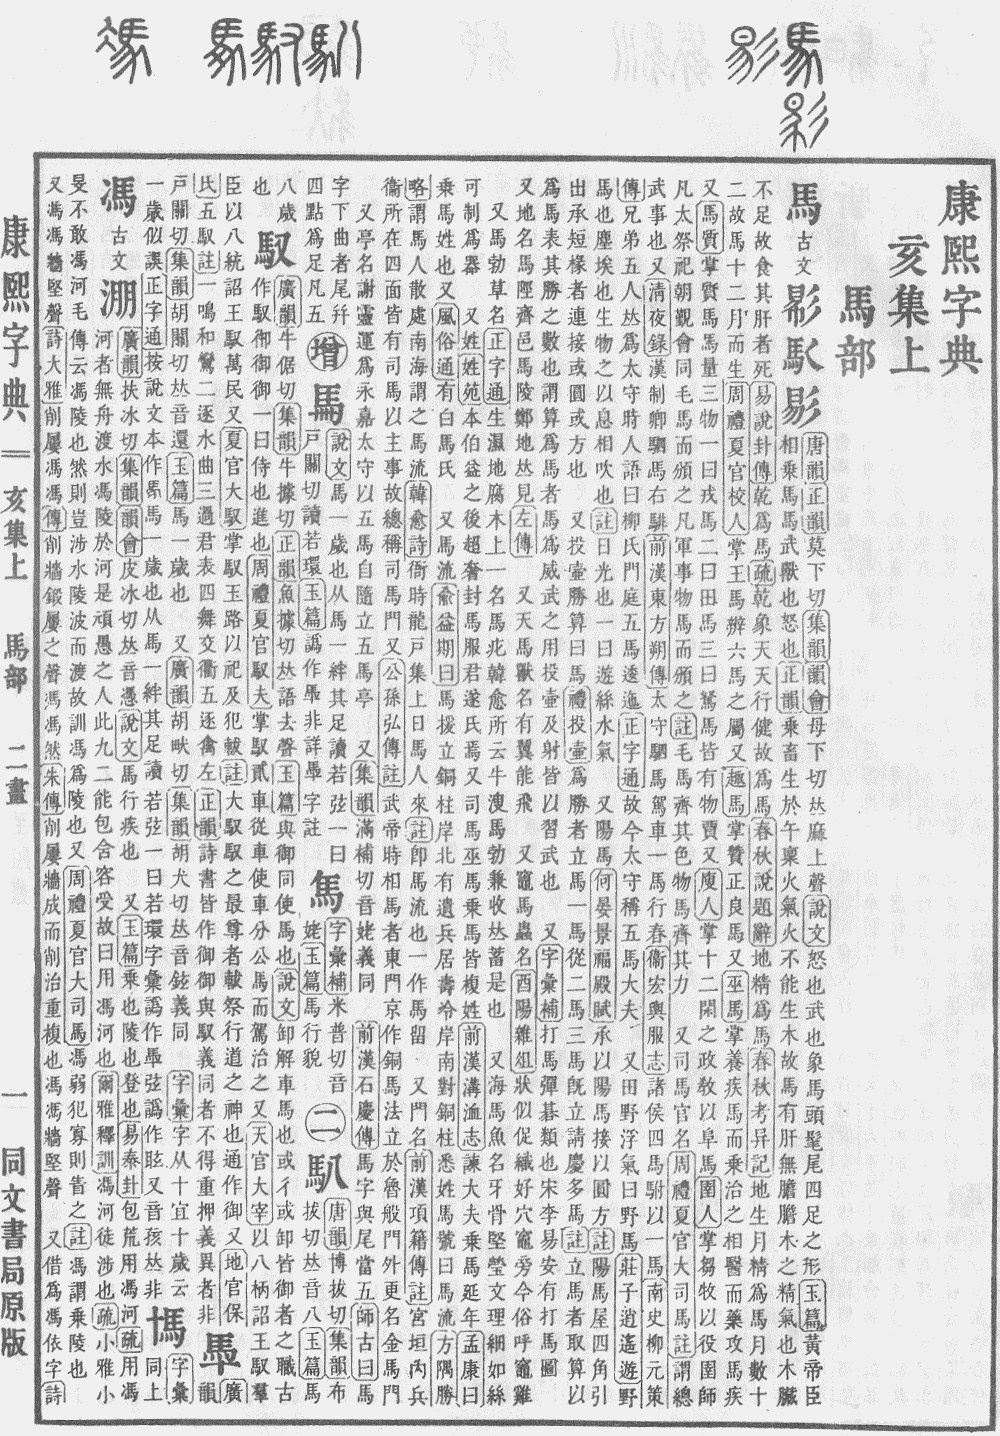 康熙字典
亥集上
馬部
馬 古文 唐韻正韻莫下切集韻韻會母下切𠀤麻上聲說文怒也武也象馬頭髦尾四足之形玉篇黃帝臣
相乘馬馬武獸也怒也正韻乘畜生於午稟火氣火不能生木故馬有肝無膽膽木之精氣也木臟
不足故食其肝者死易說卦傳乾爲馬疏乾象天天行健故爲馬春秋說題辭地精爲馬春秋考异記地生月精爲馬月數十
二故馬十二月而生周禮夏官校人掌王馬辨六馬之屬又趣馬掌贊正良馬又巫馬掌養疾馬而乘治之相醫而藥攻馬疾
又馬質掌質馬馬量三物一曰戎馬二曰田馬三曰駑馬皆有物賈又廋人掌十二閑之政敎以阜馬圉人掌芻牧以役圉師
凡大祭祀朝覲會同毛馬而頒之凡軍事物馬而頒之註毛馬齊其色物馬齊其力 又司馬官名周禮夏官大司馬註謂總
武事也又淸夜錄漢制卿駟馬右騑前漢東方朔傳太守駟馬駕車一馬行春衞宏輿服志諸侯四馬駙以一馬南史柳元策
傳兄弟五人𠀤爲太守時人語曰柳氏門庭五馬逶迤正字通故今太守稱五馬大夫 又田野浮氣曰野馬莊子逍遙遊野
馬也塵埃也生物之以息相吹也註日光也一曰遊絲水氣 又陽馬何晏景福殿賦承以陽馬接以圓方註陽馬屋四角引
出承短椽者連接或圓或方也 又投壺勝算曰馬禮投壺爲勝者立馬一馬從二馬三馬旣立請慶多馬註立馬者取算以
爲馬表其勝之數也謂算爲馬者馬爲威武之用投壺及射皆以習武也 又字彙補打馬彈碁類也宋李易安有打馬圖
又地名馬陘齊邑馬陵鄭地𠀤見左傳 又天馬獸名有翼能飛 又竈馬蟲名酉陽雜俎狀似促織好穴竈旁今俗呼竈雞
又馬勃草名正字通生濕地腐木上一名馬疕韓愈所云牛溲馬勃兼收𠀤蓄是也 又海馬魚名牙骨堅瑩文理細如絲
可制爲器 又姓姓苑本伯益之後趙奢封馬服君遂氏焉又司馬巫馬乘馬皆複姓前漢溝洫志諫大夫乘馬延年孟康曰
乘馬姓也又風俗通有白馬氏 又馬流兪益期曰馬援立銅柱岸北有遺兵居壽冷岸南對銅柱悉姓馬號曰馬流方隅勝
略謂馬人散處南海謂之馬流韓愈詩衙時龍戸集上日馬人來註卽馬流也一作馬留 又門名前漢項籍傳註宮垣內兵
衞所在四面皆有司馬以主事故總稱司馬門又公孫弘傳註武帝時相馬者東門京作銅馬法立於魯般門外更名金馬門
又亭名謝靈運爲永嘉太守以五馬自隨立五馬亭 又集韻滿補切音姥義同 前漢石慶傳馬字與尾當五師古曰馬
字下曲者尾幷
四點爲足凡五 增 馬 說文馬一歲也从馬一絆其足讀若弦一曰
戸關切讀若環玉篇譌作馵非詳馵字註 馬 字彙補米普切音
姥玉篇馬行貌 二 馭 唐韻博拔切集韻布
拔切𠀤音八玉篇馬
八歲 馭 廣韻牛倨切集韻牛據切正韻魚據切𠀤語去聲玉篇與御同使馬也說文卸解車馬也或彳或卸皆御者之職古
也 作馭御御御一曰侍也進也周禮夏官馭夫掌馭貳車從車使車分公馬而駕治之又天官大宰以八柄詔王馭羣
臣以八統詔王馭萬民又夏官大馭掌馭玉路以祀及犯軷註大馭馭之最尊者軷祭行道之神也通作御又地官保
氏五馭註一鳴和鸞二逐水曲三過君表四舞交衢五逐禽左正韻詩書皆作御御與馭義同者不得重押義異者非 馵 廣
韻
戸關切集韻胡關切𠀤音還玉篇馬一歲也 又廣韻胡畎切集韻胡犬切𠀤音鉉義同 字彙字从十宜十歲云
一歲似誤正字通按說文本作馬一歲也从馬一絆其足讀若弦一曰若環字彙譌作馵弦譌作眩又音孩𠀤非 馮 同上
字彙
馮 古文 淜 廣韻扶冰切集韻韻會皮冰切𠀤音憑說文馬行疾也 又玉篇乘也陵也登也易泰卦包荒用馮河疏用馮
河者無舟渡水馮陵於河是頑愚之人此九二能包含容受故曰用馮河也爾雅釋訓馮河徒涉也疏小雅小
旻不敢馮河毛傳云馮陵也然則豈涉水陵波而渡故訓馮爲陵也又周禮夏官大司馬馮弱犯寡則眚之註馮謂乘陵也
又馮馮牆堅聲詩大雅削屢馮馮傳削牆鍛屢之聲馮馮然朱傳削屢牆成而削治重複也馮馮牆堅聲 又借爲馮依字詩
康熙字典 亥集上 馬部 二畫 一 同文書局原版